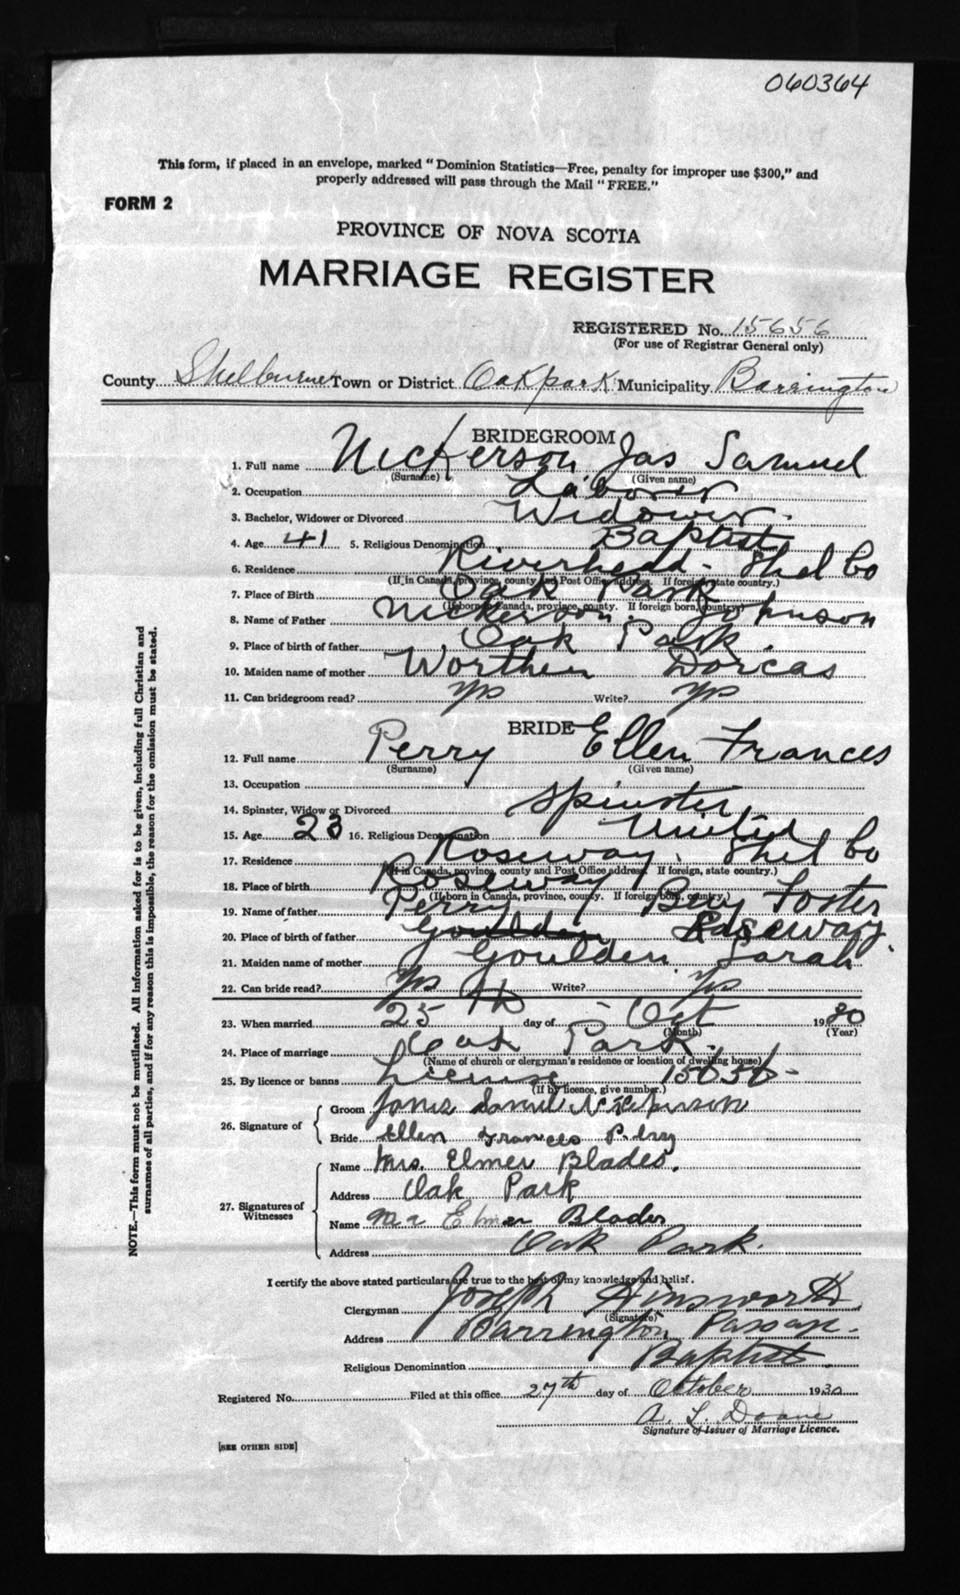 060364
This form, if placed in an envelope, marked "Dominion Statistics—Free, penalty for improper use $300," and
properly addressed will pass through the Mail "FREE."
FORM 2
PROVINCE OF NOVA SCOTIA
MARRIAGE REGISTER
REGISTERED No. 15656
(For use of Registrar General only)
County Shelburne Town or District Oakpark Municipality Barrington
BRIDEGROOM
1. Full name Nickerson Jas Samuel
(Surname) (Given name)
2. Occupation Laborer
3. Bachelor, Widower or Divorced Widower.
4. Age 41 5. Religious Denomination Baptist
6. Residence Riverhead - Shel Co
(If in Canada, province, county and Post Office address. If foreign, state country.)
7. Place of Birth Oak Park
(If born in Canada, province, county. If foreign born, country)
8. Name of Father Nickerson. Johnson
9. Place of birth of father Oak Park
10. Maiden name of mother Worthen Dorcas
11. Can bridegroom read? yes Write? yes
BRIDE
12. Full name Perry Ellen Frances
(Surname) (Given name)
13. Occupation
14. Spinster, Widow or Divorced Spinster,
15. Age 23 16. Religious Denomination United
17. Residence Roseway. Shel Co
(If in Canada, province, county and Post Office address. If foreign, state country.)
18. Place of birth Roseway
(If born in Canada, province, county. If foreign born, country.)
19. Name of father Perry Foster
20. Place of birth of father Goulden Roseway.
21. Maiden name of mother Goulden Sarah
22. Can bride read? yes Write? yes
23. When married 25th day of Oct 1930
(Month) (Year)
24. Place of marriage Oak Park.
(Name of church or clergyman's residence or location of dwelling house)
25. By licence or banns License 15656-
(If by licence, give number.)
26. Signature of
Groom James Samuel Nickerson
Bride Ellen Frances Perry
27. Signatures of Witnesses
Name Mrs. Elmer Blades.
Address Oak Park
Name Mr Elmer Blades
Address Oak Park.
I certify the above stated particulars are true to the best of my knowledge and belief.
Clergyman Joseph Ainsworth
(Signature)
Address Barrington Passage.
Religious Denomination Baptist.
Registered No. Filed at this office 27th day of October 1930
A. L. Doane
Signature of Issuer of Marriage Licence.
[SEE OTHER SIDE]
NOTE.—This form must not be mutilated. All information asked for is to be given, including full Christian and
surnames of all parties, and if for any reason this is impossible, the reason for the omission must be stated.